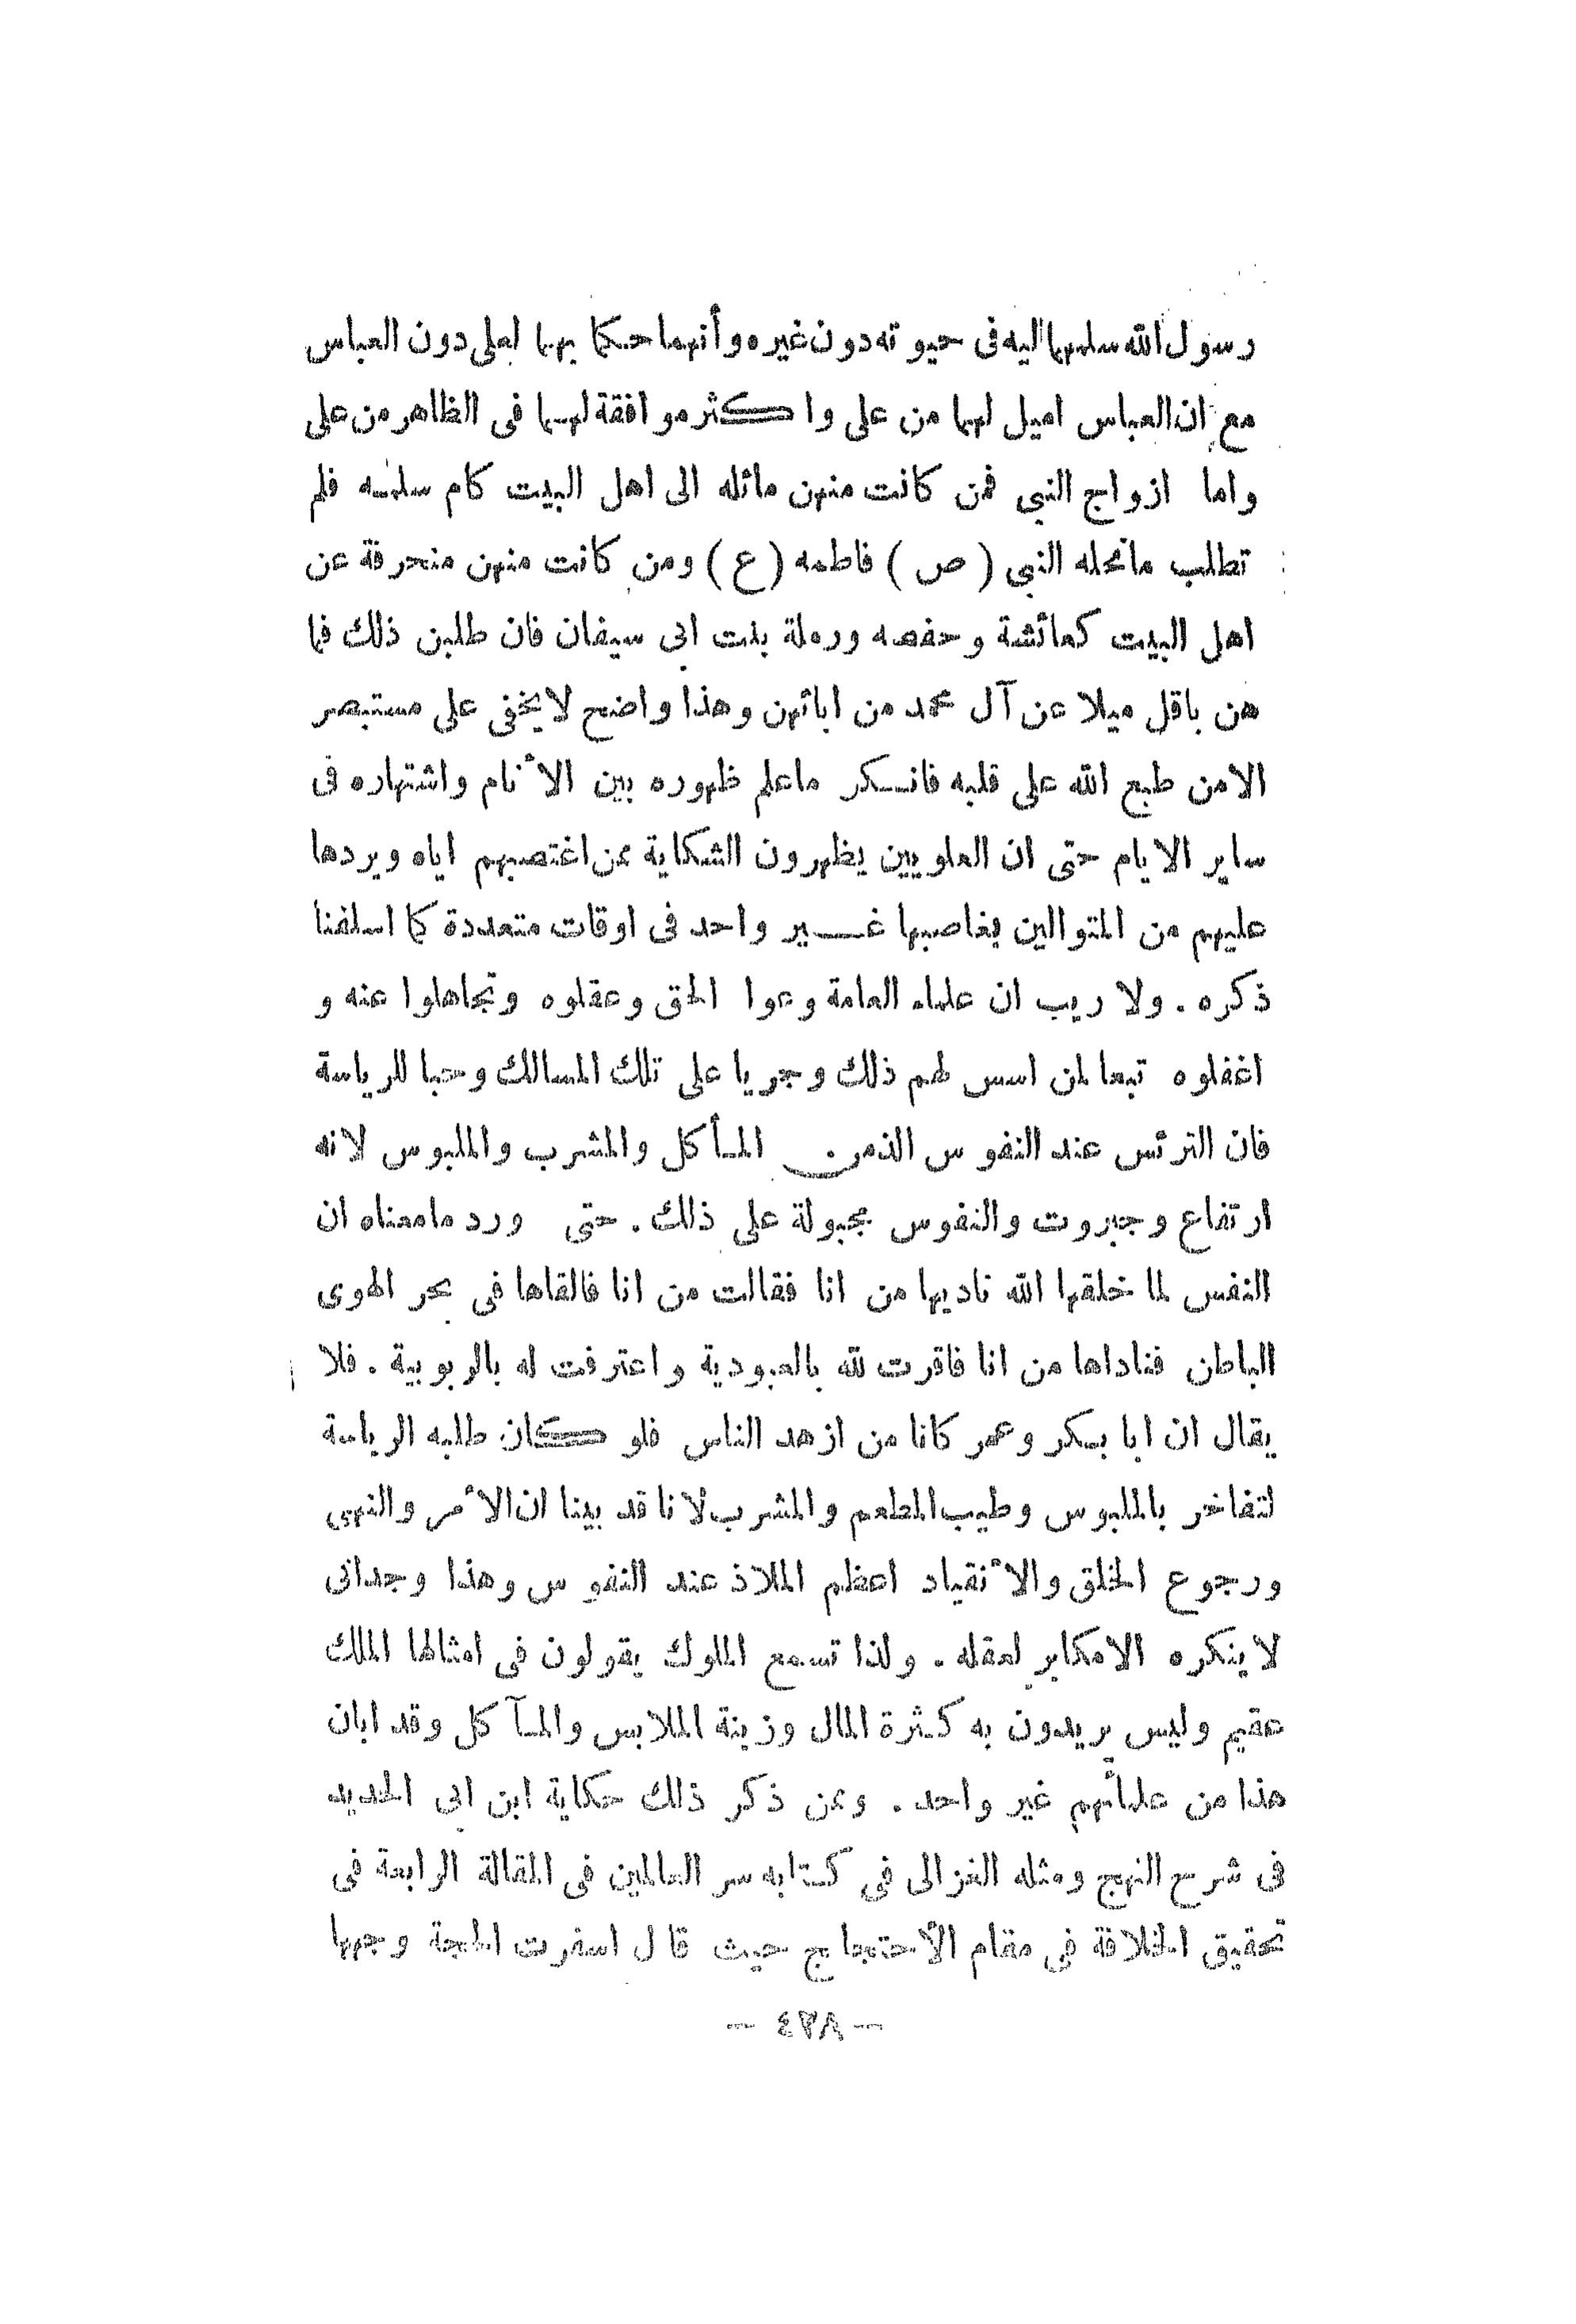 رسول الله سلمهما اليه فى حيوته دون غيره وأنهما حكما بهما لعلى دون العباس
مع ان العباس اميل لهما من على واكثر موافقة لهما فى الظاهر من على
واما ازواج النبى فمن كانت منهن مائله الى اهل البيت كام سلمه فلم
تطلب مانحله النبى ( ص ) فاطمه ( ع ) ومن كانت منهن منحرفة عن
اهل البيت كعائشة وحفصه ورملة بنت ابى سيفان فان طلبن ذلك فما
هن باقل ميلا عن آل محمد من ابائهن وهذا واضح لايخفى على مستبصر
الامن طبع الله على قلبه فانكر ماعلم ظهوره بين الأنام واشتهاره فى
ساير الايام حتى ان العلويين يظهرون الشكاية ممن اغتصبهم اياه ويردها
عليهم من المتوالين بغاصبها غير واحد فى اوقات متعددة كما اسلفنا
ذكره . ولا ريب ان علماء العامة وعوا الحق وعقلوه وتجاهلوا عنه و
اغفلوه تبعا لمن اسس لهم ذلك وجريا على تلك المسالك وحبا للرياسة
فان الترئس عند النفوس الذمن المأكل والمشرب والملبوس لانه
ارتفاع وجبروت والنفوس مجبولة على ذلك . حتى ورد مامعناه ان
النفس لما خلقها الله ناديها من انا فقالت من انا فالقاها فى بحر الهوى
الباطن فناداها من انا فاقرت لله بالعبودية واعترفت له بالربوبية . فلا
يقال ان ابا بكر وعمر كانا من ازهد الناس فلو كان طلبه الرياسة
لتفاخر بالملبوس وطيب المطعم والمشرب لانا قد بينا ان الأمر والنهى
ورجوع الخلق والأنقياد اعظم الملاذ عند النفوس وهذا وجدانى
لاينكره الامكابر لعقله . ولذا تسمع الملوك يقولون فى امثالها الملك
عقيم وليس يريدون به كثرة المال وزينة الملابس والمآكل وقد ابان
هذا من علمائهم غير واحد . وممن ذكر ذلك حكاية ابن ابى الحديد
فى شرح النهج ومثله الغزالى فى كتابه سر العالمين فى المقالة الرابعة فى
تحقيق الخلافة فى مقام الأحتجاج حيث قال اسفرت الحجة وجهها
— ٤٣٨ —